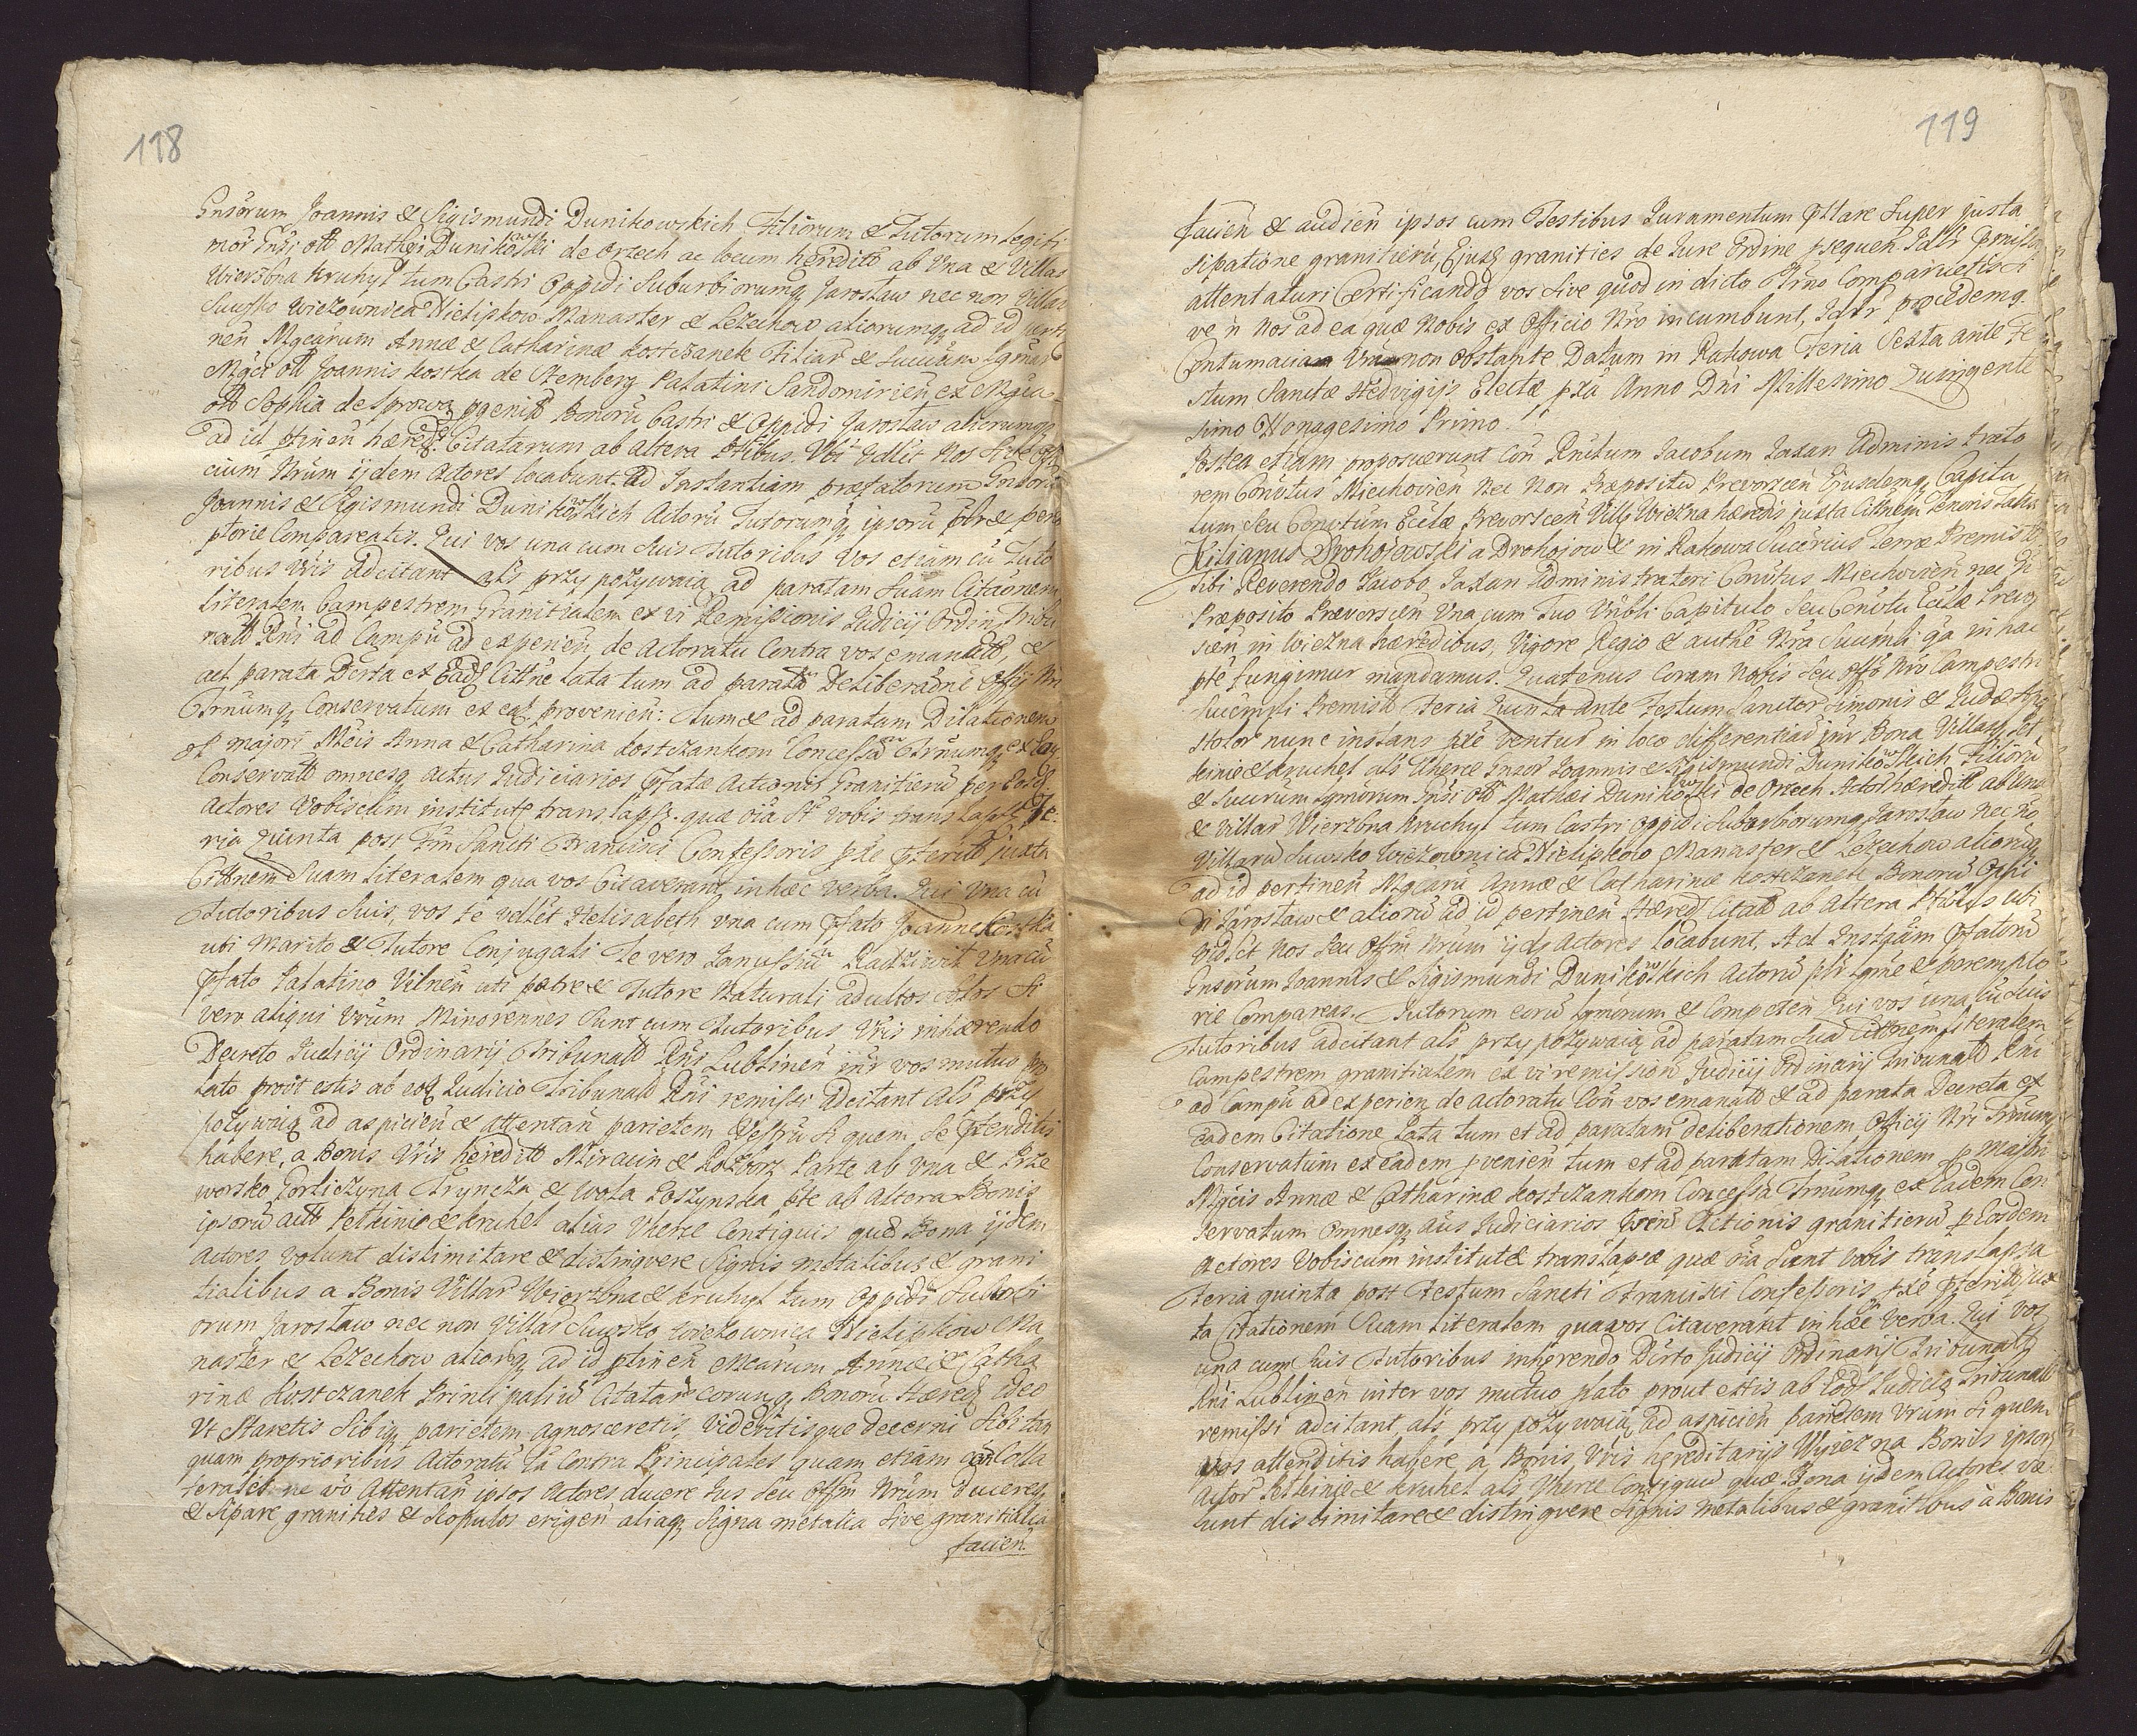 118
Gnsorum Joannis & Sigismundi Dunikowskich Filiorum & Tutorum legiti
mor Gnsi olt Mathei Dunikowski de Orzech ac locum heredit ab Una & Villas
Wierzbna Kruhyl tum Castri Oppidi Suburbiorumq Jaroslaw nec non Villar
Suusko Wiezownica Nielipkow Manaster & Lezechow aliorumq ad id perti
nen Mgcarum Annæ & Catharinæ Kostczanek Filiar & Succum Lgmar
Mgci olt Joannis Kostka de Stemberg Palatini Sandomirien ex Mgca
olt Sophia de Sprowa pgenit Bonoru Castri & Oppidi Jaroslaw aliorumq
ad id ptinen hæred. Citatarum ab altera Ptibus. Ubi Vdlit Nos Seu Offi
cium Nrum ijdem Actores locabunt. Ad Instantiam præfatorum Gnsoru
Joannis & Sigismundi Dunikowskich Actoru Tutorumq ipsoru pbræ perem
ptorie Compareatis. Qui vos una cum suis Tutoribus Vos etiam cu Tuto
ribus Vris adcitant als przypozywaią ad paratam suam Citaonem
literalem Campestrem Granitialem ex vi Remissionis Judicij Ordin Tribu
nalt Rni ad Campu ad experien de Actoratu Contra vos emanalt, &
ad parata Dcrta ex Ead Cittne lata tum ad parata Deliberaone Offij Nri
Trnumq Conservatum ex eat provenien: tum & ad paratam Dilationem
ob majori Mcis Anna & Catharina Kostczankom Concessa Trnumq ex Ead
Conservalt omnesq actus Judiciarios pfatæ Actionis Granitieru per Eosd.
Actores Vobiscum institute translapsq. quæ oia st vobis translapsa Fe.
ria quinta post Fm Sancti Francisci Confessoris pxe pterit juxta
Cittnem Suam literalem qua vos Citaverant in hæc verba. Qui Una cu
Tutoribus Suis, vos te vellet Helisabeth una cum pfato Joanne Kostka
uti Marito & Tutore Conjugali Te vero Janussiu Radziwil Una cu
pfato Palatino Vilnen uti patre & Tutore Naturali adultos Solos Si
vero aliqui Vrum Minorennes Sunt cum Tutoribus Vris inhærendo
Decreto Judicij Ordinarij Tribunalt Rni Lublinen intr vos mutuo pro
lato prout estis ab eod Judicio Tribunalt Rni remissi adcitant als przy
pozywaią ad aspicien & attentan parietem Vestru Si quem Se ptenditis
habere, a Bonis Vris heredit Mirocin & Rozborz Parte ab Una & Prze
worsko Gorliczyna Tryncza & Wola Roszynska pte ab Altora Bonis
ipsoru ault Pelkinie & Kruhel alias Uherce Contiguis quæ Bona ijdem
Actores volunt dislimitare & distingvere Signis metalibus & grani
tialibus a Bonis Villar Wierzbna & Kruhyl tum Oppidi Suburbi
orum Jaroslaw nec non Villar Suusko Wiezownica Nielipkow Ma
naster & Lezechow aliorq ad id ptinen Mcarum Annæ & Catha
rinæ Kostczanek Principaliu Citatar eorumq Bonoru Hæred ideo
Ut Staretis Sibiq parietem agnosceretis, Videbitisque decerni Sibi tan
quam proprioribus Actoratu Ta Contra Principales quam etiam con Colla
terales ne vo Attentan ipsos Actores ducere Jus Seu Offm Nrum Duceres
& Sipare granities & Scopulos erigen aliaq Signa metalia Sive granitialia
facien
119
facien & audien ipsos cum Testibus Juramentum pttare Super justa
sipatione granitieru, Ejusq granities de Jure Ordine psequen Idlr Pmissa
attentaturi Certificando vos Sive quod in dicto Trno Comparuetis si
ve n nos ad ea quæ Nobis ex Officio Nro incumbunt, Idlr procedemq.
Contumacia Vra non obstante Datum in Rakowa Feria Sexta ante Fe
stum Sanctæ Hedvigijs Electæ pxa Anno Dni Millesimo Quingente
simo Nonagesimo Primo
Postea etiam proposuerunt Con Rndum Jacobum Jaxan Administrato
rem Convtus Miechovien Nec Non Præpositu Prevorscen Ejusdemq Capitu
lum Seu Convtum Eclæ Prevorscen Villæ Wiezna hæredis juxta Citnem Tenoris talis
Kilianus Drohojowski a Drohojow & in Rakowa Succrius Terræ Premisl
tibi Reverendo Jacobo Jaxan administratori Convtus Miechovien nec No
Præposito Prevorscen Una cum Tuo Vnbli Capitulo Seu Convtu Eclæ Prevor
scen in Wiezna hæredibus, Vigore Regio & authe Nra Succmli qa in hac
pte fungimur mandamus. Quatenus Coram Nobis Seu Offo Nro Campestri
Succmli Premisl Feria Quinta ante Festum Sanctor Simonis & Judæ Apo
stolor nunc instans pxe ventur in loco differentiar intr Bona Villasq Pel
kinie & Kruhel als Uherce Gnsor Joannis & Sigismundi Dunikowskich Filioru
& Succrum Lgmorum Gnsi Olt Mathæi Dunikowski de Orzech Actor hæredit ab Una
& Villar Wierzbna Kruchyl tum Castri Oppidi Suburborumq Jaroslaw nec No
Villaru Suusko Wiezownica Nielipkow Manaster & Lezechow aliorumq
ad id pertinen Mgcaru Annæ & Catharinæ Kostczanek Bonoru Oppi
di Jaroslaw & alioru ad id pertinen Hæred Citalt ab Altera Ptibus ubi
Vidlct Nos Seu Offm Nrum ijde Actores locabunt, Ad Instgam pfatoru
Gnsorum Joannis & Sigismundi Dunikowskich Actoru plr Lgme & perempto
rie Compareas. Tutorum eoru Lgmorum & Competen Qui vos una cu suis
Tutoribus adcitant als przypozywaią ad paratam Sua Cittnem literalem
Campestrem granitialem ex vi remission Judicij Ordinarij Tribunalt Rni
ad Campu ad experien de actoratu Con vos emanalt & ad parata Decreta ex
eadem Citatione lata tum et ad paratam deliberationem Officij Nri Trnumq
Conservatum ex eadem pvenien tum et ad paratam Dilationem p Majori
Mgcis Annæ & Catharinæ Kostczankom Concessa Trnumq ex Eadem Con
servatum omnesq aus Judiciarios Actionis granitieru p Eosdem
Actores Vobiscum institutæ translapsæ quæ oia Sunt Vobis translapsa
Feria quinta post Festum Sancti Francisci Confessoris pxe pterit jux
ta Citationem Suam literalem qua vos Citaverant in hæc Verba. Qui Vos
una cum Suis Tutoribus inherendo Dcrto Judicij Ordinarij Tribunalt
Rni Lublinen inter vos mutuo plato prout estis ab Eod Judicio Tribunalt
remissi adcitant als przypozywaią ad aspicien parietem Vrum Si quem
Vos attenditis habere a Bonis Vris hereditarijs Wyiezna Bonis ipsorq
Actor Pelkinie & Kruhel als Uherce Contiguu quæ Bona ijdem Actores vo
lunt dislimitare & distingvere Signis metalibus & granitbus à Bonis